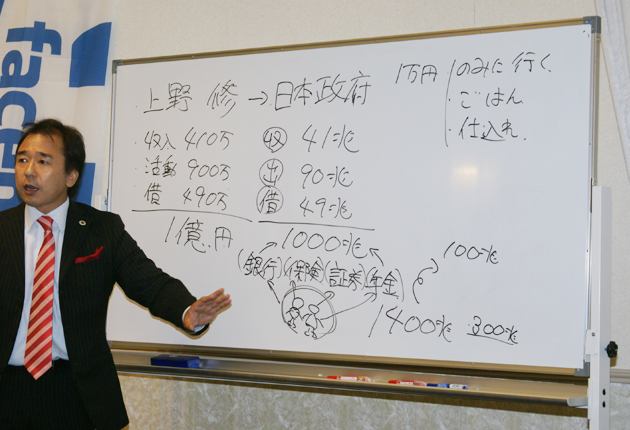 facen
・上野 修 → 日本政府
・収入 410万 収 41兆
・活動 900万 出 90兆
・借 490万 借 49兆
1億.円 1000兆
(銀行)(保険)(証券)(年金)
1万円
・のみに行く、
・ごはん
・仕入れ
100兆
1400兆 300兆